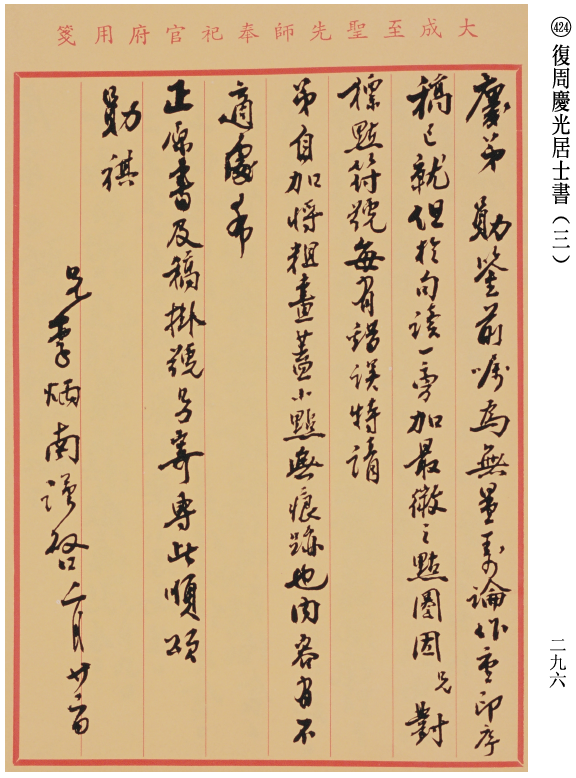 ㊷㊃ 復周慶光居士書(三)
大成至聖先師奉祀官府用箋
慶弟 勛鑒前囑為無量壽論作重印序
稿已就但於句讀一旁加最微之點圈因兄對
標點符號每有錯誤特請
弟自加將粗畫蓋小點無痕跡也內容有不
適處希
正原書及稿掛號另寄專此順頌
勛祺
兄李炳南謹啓二月廿日
二九六